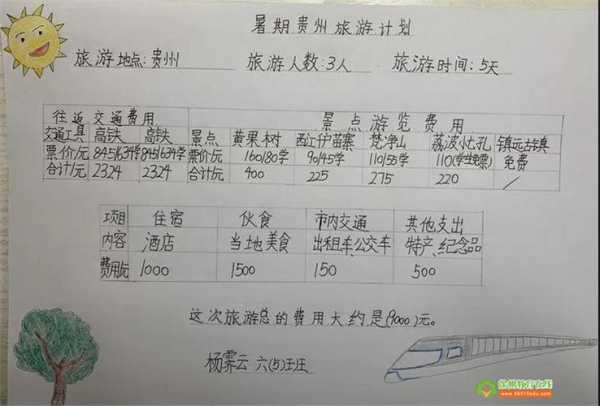 暑期贵州旅游计划
旅游地点:贵州 旅游人数:3人 旅游时间:5天
往返交通费用 景点游览费用
交通工具 高铁 高铁 景点 黄果树 西江千户苗寨 梵净山 荔波小七孔 镇远古镇
票价/元 845/634学 845/634学 票价/元 160/80学 90/45学 110/55学 110(学生免票) 免费
合计/元 2324 2324 合计/元 400 225 275 220 /
项目 住宿 伙食 市内交通 其他支出
内容 酒店 当地美食 出租车公交车 特产、纪念品
费用/元 1000 1500 150 500
这次旅游总的费用大约是(9000)元。
杨霁云 六(5)王庄